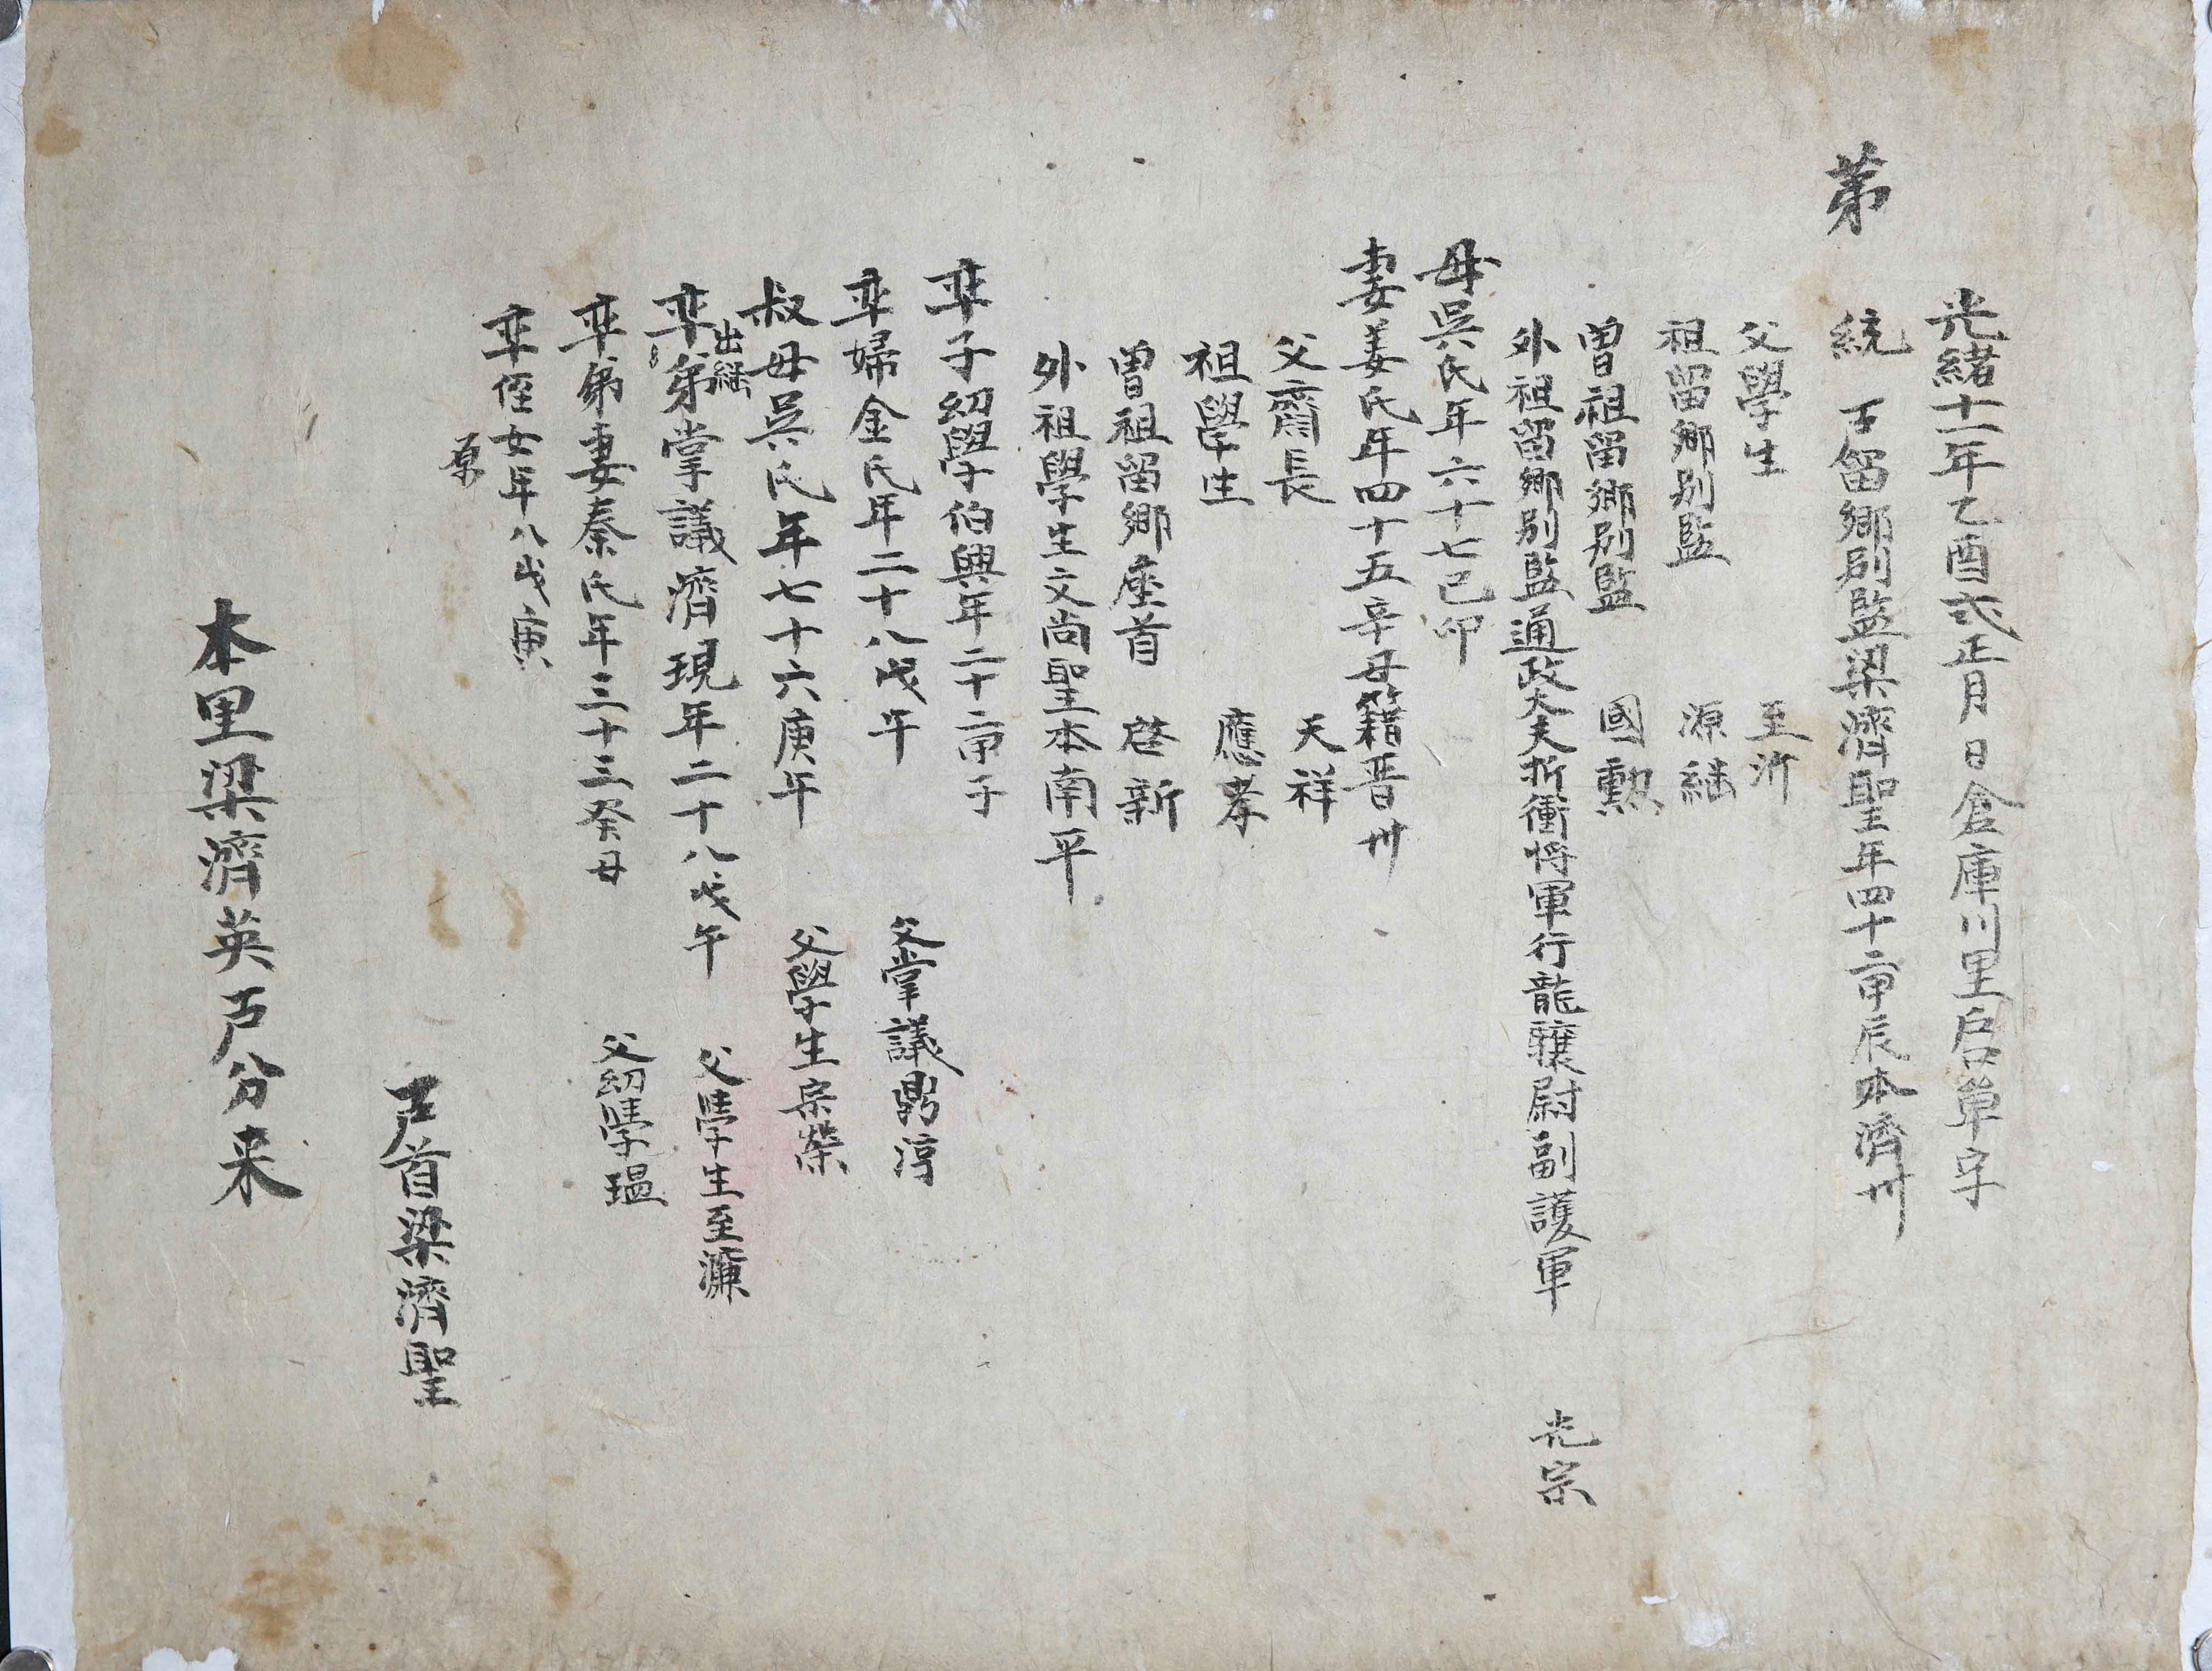 光緒十一年乙酉式正月 日倉庫川里戶口單字
第 統 戶留鄕別監梁濟聖年四十二甲辰本濟卅
父學生 至沂
祖留鄕別監 源繼
曽祖留鄕別監 國勲
外祖留鄕別監通政大夫折衝將軍行龍驤尉副護軍 光宗
母吳氏年六十七己卯
妻姜氏年四十五辛丑籍晋卅
父齋長 天祥
祖學生 應孝
曽祖留鄕座首 啓新
外祖學生文尙聖本南平
率子幼學伯興年二十二甲子
率婦金氏年二十八戊午 父掌議 淳
叔母吳氏年七十六庚午 父學生宗榮
率弟掌議濟現年二十八戊午 父學生至濂
出繼
率弟妻秦氏年三十三癸丑 父幼學瑥
率侄女年八戊寅
原
戶首梁濟聖
本里梁濟英戶分来